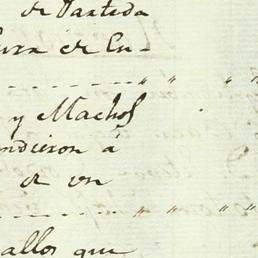 de Partida
de Cu-
y Machos
ndieron á
de un
allos que